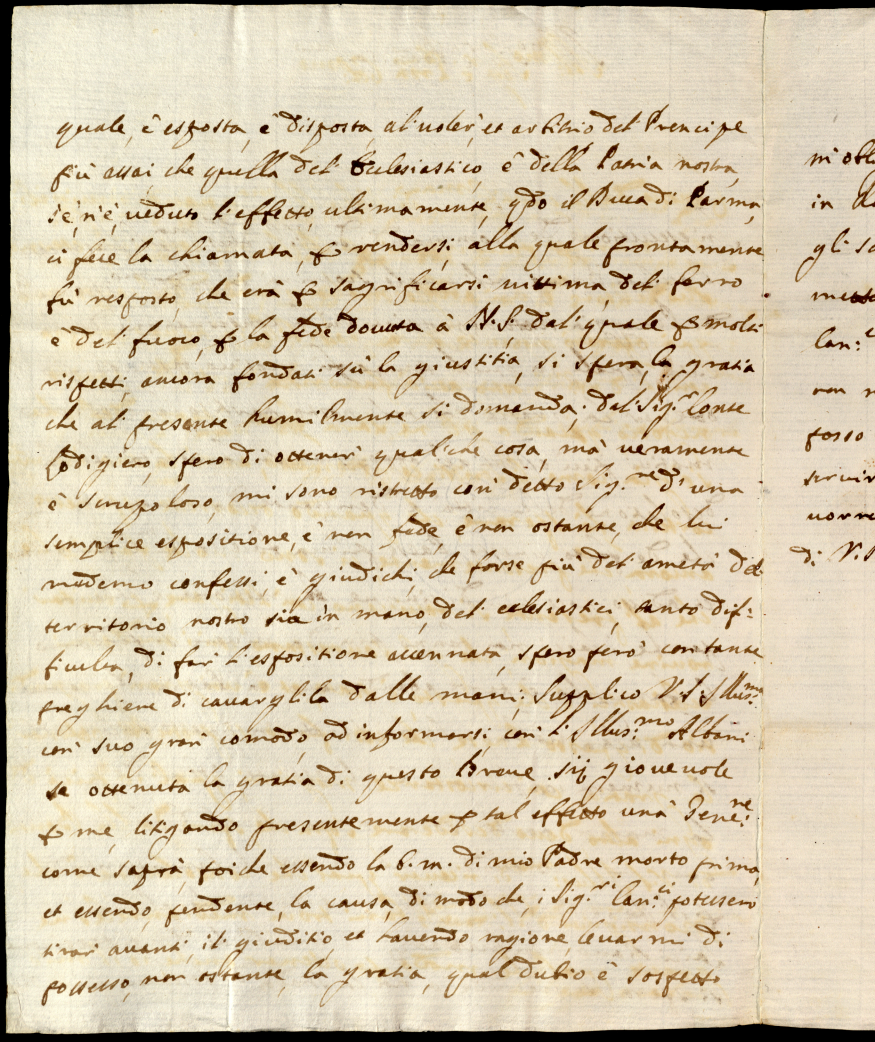 quale, è esposta, è disposta al' voler', et arbitrio del' Prencipe
più assai, che quella del' Ecclesiastico, è della Patria nostra,
s'è, n'è, veduto l'effetto, ultimamente, qdo il Duca di Parma,
ci fece la chiamata, p rendersi, alla quale prontamente
fù risposto, che erà p sagrificarsi vittima del' ferro
è del' fuoco, p la fede dovuta à N. S. dal' quale p molti
rispetti, ancora fondati sù la giustitia, si spera, la gratia
che al' presente humilmente si domanda; dal' Sig.r Conte
spero di ottener' qualche cosa, mà veramente
è scrupoloso, mi sono ristretto con' detto Sig.re d'una
semplice espositione, è non fede, è non ostante, che lui
medemo confessi, è giudichi, che forse più del' ametà del
territorio nostro sia in mano, del' eclesiastici, tanto dif=
ficulta, di far' l'espositione accennata, spero però con tante
preghiere di cavargliela dalle mani; supplico V. S. Illus.ma
con' suo gran' comodo, ad informarsi, con' l'Illus.mo Albani
se ottenuta la gratia di questo Breve, sij giovevole
p me, litigando presentemente p tal' effetto una
come saprà, poiche essendo la b. m. di mio Padre morto prima,
et essendo, pendente, la causa, di modo che, i Sig.ri Can.ci potessero
tirar' avanti, il' giuditio, et havendo ragione levar mi di
possesso, non ostante, la gratia, qual dubio è sospetto
in
gli
Can:
non
posso
servir
vorre
di V. S